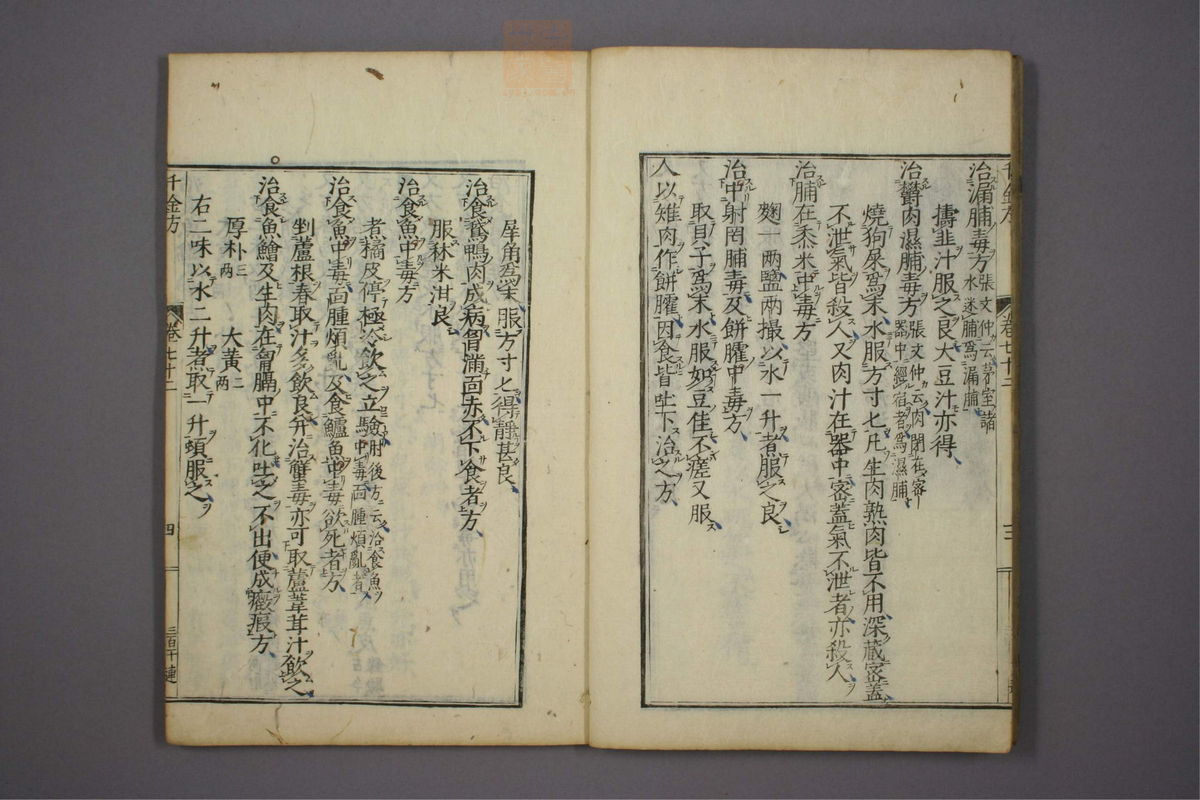 治漏脯毒方張文仲云茅室諸水迷脯爲漏脯
擣韭汁服之良大豆汁亦得
治欝肉濕脯毒方張文仲云肉閉在密器中經宿者爲濕脯
燒狗屎爲末水服方寸匕凡生肉熟肉皆不用深藏密蓋
不泄氣皆殺人又肉汁在器中密蓋氣不泄者亦殺人
治脯在黍米中毒方
麴一兩鹽兩撮以水一升煮服之良
治中射罔脯毒及餅臛中毒方
取貝子爲末水服如豆佳不瘥又服
人以雉肉作餅臛因食皆吐下治之方
犀角爲末服方寸匕得靜甚良
治食鵞鴨肉成病胷滿面赤不下食者方
服秫米泔良
治食魚中毒方
煮橘皮停極冷飲之立驗肘後方云治食魚中毒面腫煩亂者
治食魚中毒面腫煩亂及食鱸魚中毒欲死者方
剉蘆根舂取汁多飲良并治蟹毒亦可取蘆葦茸汁飲之
治食魚鱠及生肉在胷膈中不化吐之不出便成癥瘕方
厚朴三兩 大黃二兩
右二味以水二升煮取一升頓服之
千金方 卷七十二 四